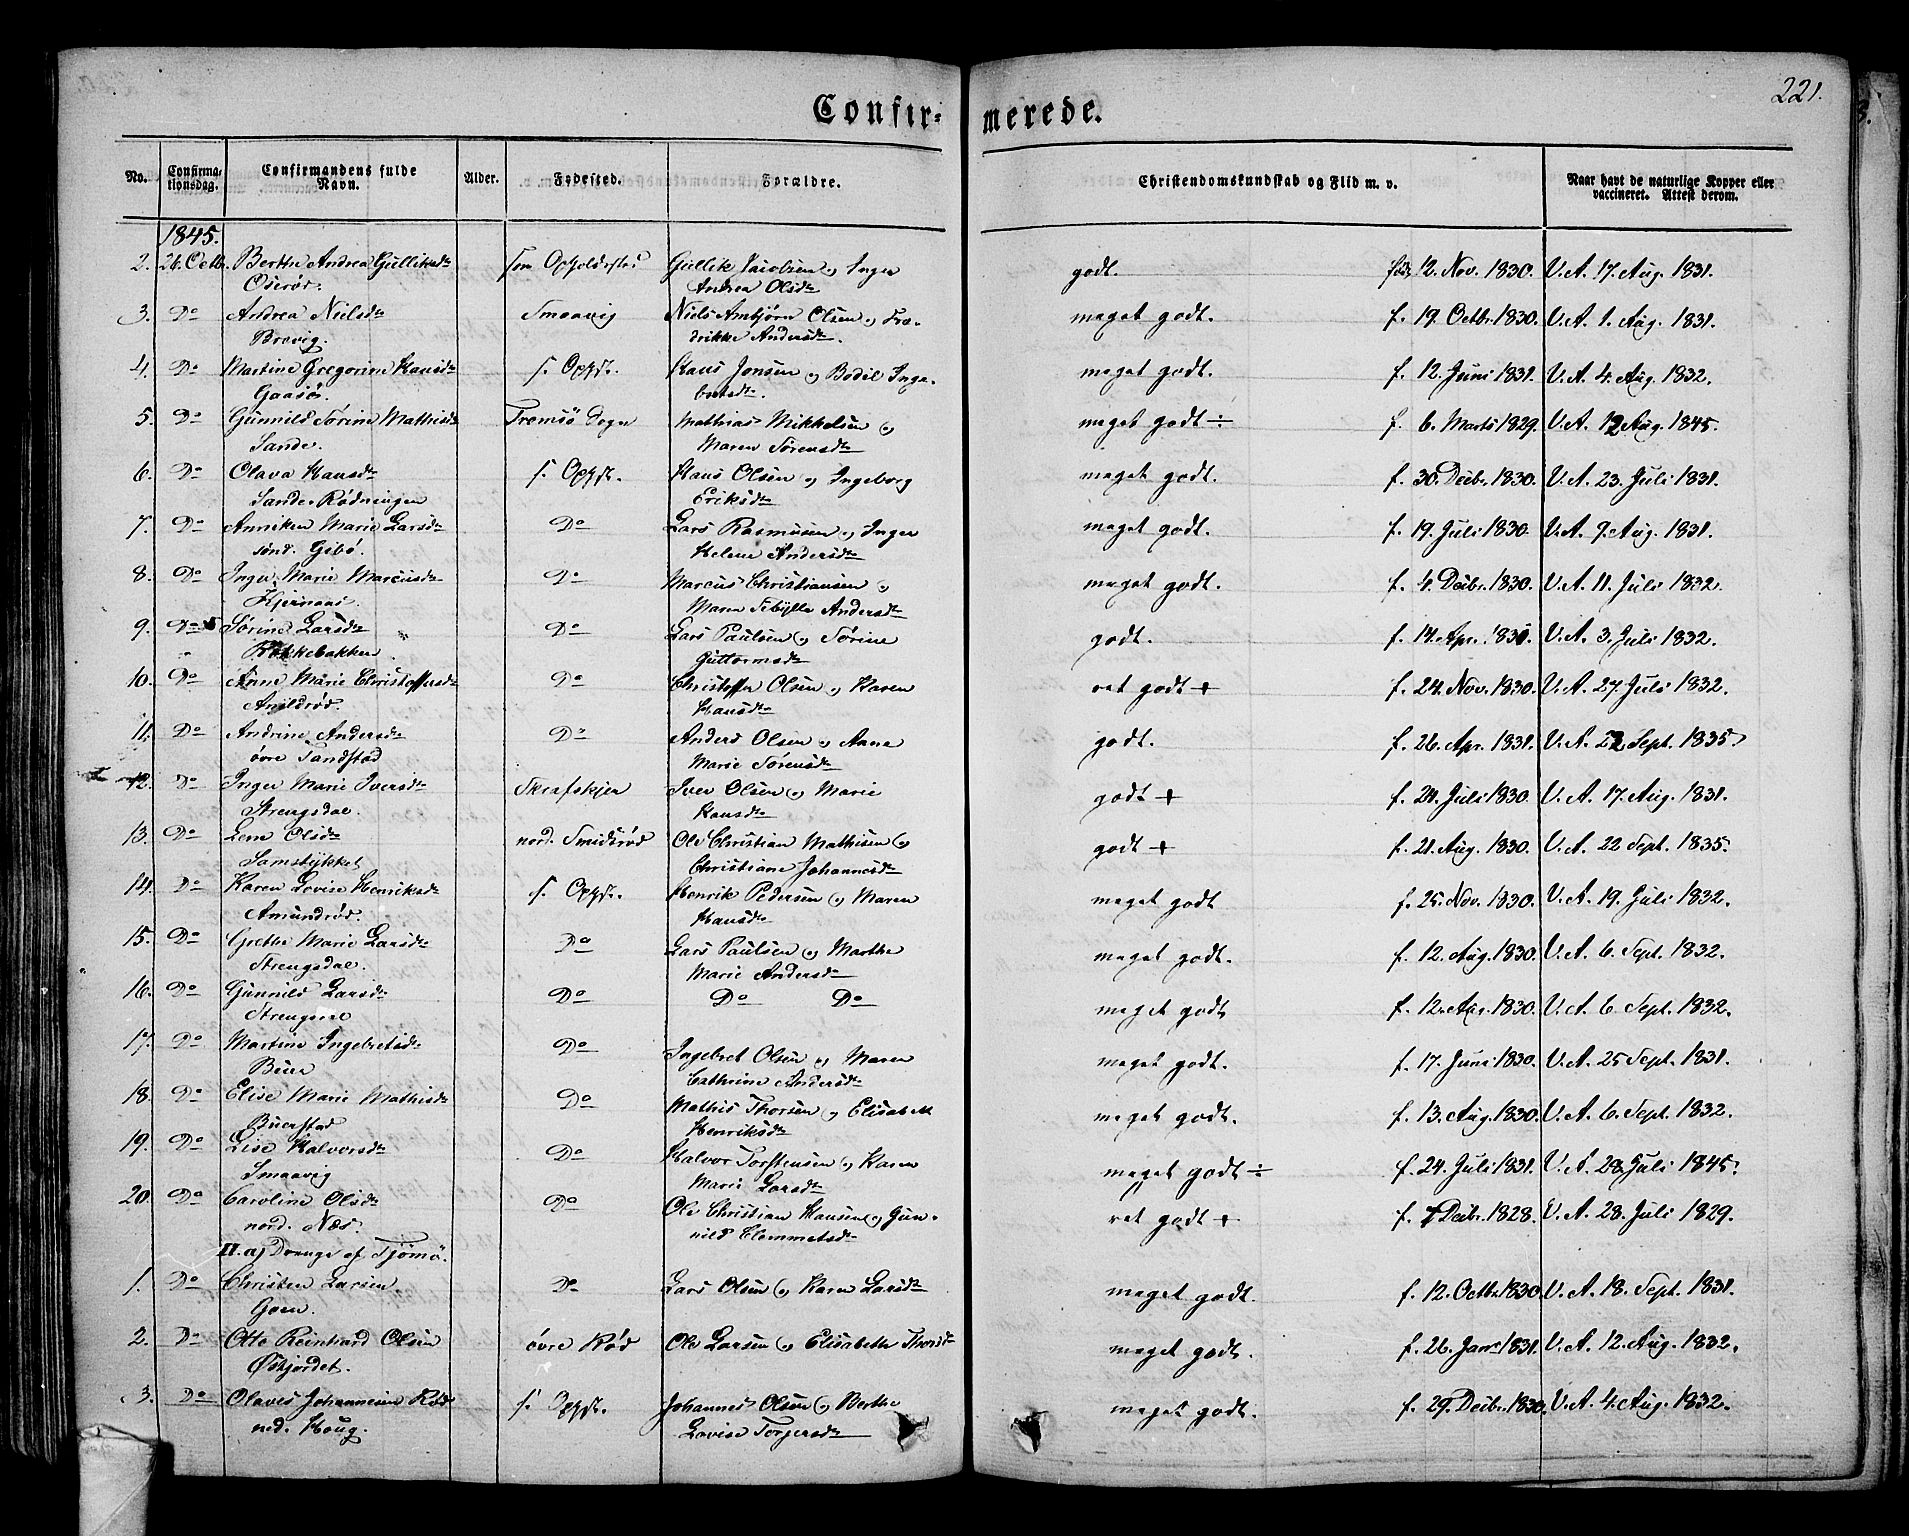 221.
Confir- merede.
No. Confirma-tionsdag. Confirmandens fulde Navn. Alder. Fødested. Forældre. Christendomskundskab og Flid m. v. Naar havt de naturlige Kopper eller vaccineret. Attest derom.
1845.
2. 26. Octb. Berthe Andrea Gulliksdr som Opholdsstes Gullik Jacobsen og Inger godt. 12. Nov. 1830. V.A. 17. Aug. 1831.
Oserør. Andrea Olsdr
3. Do Andrea Nielsdr Smaavig Niels Ambjörn Olsen og Fre- meget godt. f. 19. Octbr. 1830. V.A. 1. Aug. 1831.
Brevig. drikke Andersdr.
4. Do Martine Gregorine Hansdr s. Opht. Hans Jonsen og Bodil Inge- meget godt. f. 12. Juni 1831. V.A. 4. Aug. 1832.
Gaasø. bretsdr.
5. Do Gunnild Sørine Mathisdr Tromsö Sogn Mathias Mikkelsen og meget godt ÷ f. 6. Marts 1829. V.A. 12 Aug. 1845.
Sande. Maren Sørensdr
6. Do Olava Hansdr s. Opht. Hans Olsen og Ingeborg meget godt. f. 30. Decbr. 1830. V.A. 23. Juli 1831.
Sande Rødningen Eriksdr
7. Do Anneken Marie Larsdr Do Lars Rasmusen og Inger meget godt. f. 19. Juli 1830. V.A. 9. Aug. 1831.
sønd. Gibø. Helene Andersdr
8. Do Inger Marie Marcusdr Do Marcus Christiansen og meget godt. f. 4. Decbr. 1830. V.A. 11. Juli 1832.
Kjernaas. Maren Sebylle Andersdr
9. Do Sørine Larsdr Do Lars Paulsen og Sørine godt. f. 14. Apr. 1831. V.A. 3. Juli 1832.
Guttormsdr
10. Do Anne Marie Christoffersdr Do Christoffer Olsen og Karen ret godt + f. 24. Nov. 1830. V.A. 27. Juli 1832.
Hansdr
11. Do Andrine Andersdr Do Anders Olsen og Anne godt. f. 26. Apr. 1831. V.A. 22 Sept. 1835.
øvre Sandstad Marie Sørensdr
12. Do Inger Marie Iversdr Skrafskjer Iver Olsen og Marie godt + f. 24. Juli 1830. V.A. 17. Aug. 1831.
Strengsdal. Hansdr
13. Do Lene Olsdr nord. Smidsrød Ole Christian Mathisen og godt + f. 21. Aug. 1830. V.A. 22 Sept. 1835.
Samstykket Christiane Johannesdr
14. Do Karen Lovise Henriksdr s. Opht. Henrik Pedersen og Maren meget godt f. 25. Nov. 1830. V.A. 19. Juli 1832.
Amundrød. Hansdr
15. Do Grethe Marie Larsdr Do Lars Paulsen og Marthe meget godt. f. 12. Aug. 1830. V.A. 6. Sept. 1832.
Strengsdal. Marie Andersdr
16. Do Gunnild Larsdr Do Do Do meget godt f. 12. Aug. 1830. V.A. 6. Sept. 1832.
17. Do Martine Ingebretsdr Do Ingebret Olsen og Maren meget godt. f. 17. Juni 1830. V.A. 25 Sept. 1831.
Buer Cathrine Andersdr
18. Do Elise Marie Mathisdr Do Mathis Thorsen og Elisabeth meget godt. f. 13. Aug. 1830. V.A. 6. Sept. 1832.
Buerstad Henriksdr
19. Do Lise Halvorsdr Do Halvor Torstensen og Karen meget godt ÷ f. 24. Juli 1831. V.A. 28. Juli 1845.
Smaavig Marie Larsdr
20. Do Caroline Olsdr Do Ole Christian Hansen og Gun- ret godt + f. 7 Decbr. 1828. V.A. 28. Juli 1829.
nord. Næs. nild Clemmetsdr
II. a) Drenge af Tjømø.
1. Do Christen Larsen. Do Lars Olsen og Karen Larsdr meget godt. f. 12. Octbr. 1830. V.A. 18. Sept. 1831.
Goen.
2. Do Otto Reinhard Olsen övre Rød Ole Larsen og Elisabeth Thorsdr meget godt. f. 26. Janr. 1831. V.A. 12. Aug. 1832.
Østjordet.
3. Do Olaves Johannesen Rød s. Opht. Johannes Olsen og Berthe meget godt. f. 29. Decbr. 1830. V.A. 4. Aug. 1832.
ned. Houg. Lovise Torgersdr